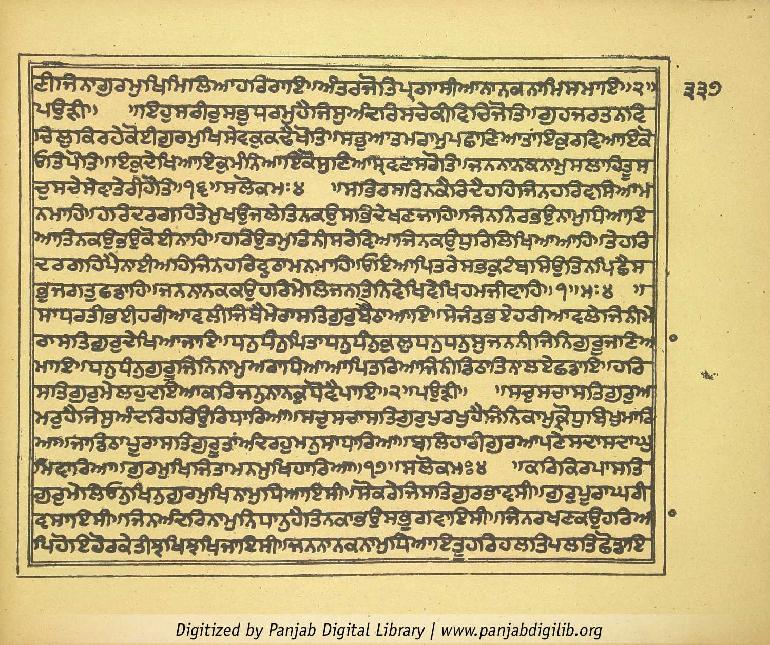 ਣੀਜਿਨਾਗੁਰਮੁਖਿਮਿਲਿਆਹਰਿਰਾਇ॥ਅੰਤਰਜੋਤਿਪ੍ਰਗਾਸੀਆਨਾਨਕਨਾਮਿਸਮਾਇ॥੨॥ ੩੩੭
ਪਉੜੀ॥ ॥ਇਹੁਸਰੀਰੁਸਭੁਧਰਮੁਹੈਜਿਸੁਅੰਦਰਿਸਚੇਕੀਵਿਚਿਜੋਤਿ॥ਗੁਹਜਰਤਨਵਿ
ਚਿਲੁਕਿਰਹੇਕੋਈਗੁਰਮੁਖਿਸੇਵਕੁਕਢੈਖੋਤਿ॥ਸਭੁਆਤਮਰਾਮੁਪਛਾਣਿਆਤਾਂਇਕੁਰਵਿਆਇਕੋ
ਓਤਿਪੋਤਿ॥ਇਕੁਦੇਖਿਆਇਕੁਮੰਨਿਆਇਕੋਸੁਣਿਆਸ੍ਰਵਣਸਰੋਤਿ॥ਜਨਨਾਨਕਨਾਮੁਸਲਾਹਿਤੂਸ
ਚੁਸਚੇਸੇਵਾਤੇਰੀਹੋਤਿ॥੧੬॥ਸਲੋਕਮਃ੪ ॥ਸਭਿਰਸਤਿਨਕੈਰਿਦੈਹਹਿਜਿਨਹਰਿਵਸਿਆਮ
ਨਮਾਹਿ॥ਹਰਿਦਰਗਹਿਤੇਮੁਖਉਜਲੇਤਿਨਕਉਸਭਿਦੇਖਣਜਾਹਿ॥ਜਿਨਨਿਰਭਉਨਾਮੁਧਿਆਇ
ਆਤਿਨਕਉਭਉਕੋਈਨਾਹਿ॥ਹਰਿਉਤਮੁਤਿਨੀਸਰੇਵਿਆਜਿਨਕਉਧੁਰਿਲਿਖਿਆਆਹਿ॥ਤੇਹਰਿ
ਦਰਗਹਿਪੈਨਾਈਅਹਿਜਿਨਹਰਿਵੁਠਾਮਨਮਾਹਿ॥ਓਇਆਪਿਤਰੇਸਭਕੁਟੰਬਸਿਉਤਿਨਪਿਛੈਸ
ਭੁਜਗਤੁਛਡਾਹਿ॥ਜਨਨਾਨਕਕਉਹਰਿਮੇਲਿਜਨਤਿਨਵੇਖਿਵੇਖਿਹਮਜੀਵਾਹਿ॥੧॥ਮਃ੪ ॥
ਸਾਧਰਤੀਭਈਹਰੀਆਵਲੀਜਿਥੈਮੇਰਾਸਤਿਗੁਰੁਬੈਠਾਆਇ॥ਸੇਜੰਤਭਏਹਰੀਆਵਲੇਜਿਨੀਮੇ
ਰਾਸਤਿਗੁਰੁਦੇਖਿਆਜਾਇ॥ਧਨੁਧੰਨੁਪਿਤਾਧਨੁਧੰਨੁਕੁਲੁਧਨੁਧਨੁਸੁਜਨਨੀਜਿਨਿਗੁਰੂਜਣਿਆ
ਮਾਇ॥ਧਨੁਧੰਨੁਗੁਰੂਜਿਨਿਨਾਮੁਅਰਾਧਿਆਆਪਿਤਰਿਆਜਿਨੀਡਿਠਾਤਿਨਾਲਏਛਡਾਇ॥ਹਰਿ
ਸਤਿਗੁਰੁਮੇਲਹੁਦਇਆਕਰਿਜਨੁਨਾਨਕੁਧੋਵੈਪਾਇ॥੨॥ਪਉੜੀ॥ ॥ਸਚੁਸਚਾਸਤਿਗੁਰੁਅ
ਮਰੁਹੈਜਿਸੁਅੰਦਰਿਹਰਿਉਰਿਧਾਰਿਆ॥ਸਚੁਸਚਾਸਤਿਗੁਰੁਪੁਰਖੁਹੈਜਿਨਿਕਾਮੁਕ੍ਰੋਧੁਬਿਖੁਮਾਰਿ
ਆ॥ਜਾਡਿਠਾਪੂਰਾਸਤਿਗੁਰੂਤਾਂਅੰਦਰਹੁਮਨੁਸਾਧਾਰਿਆ॥ਬਲਿਹਾਰੀਗੁਰਆਪਣੇਸਦਾਸਦਾਘੁ
ਮਿਵਾਰਿਆ॥ਗੁਰਮੁਖਿਜਿਤਾਮਨਮੁਖਿਹਾਰਿਆ॥੧੭॥ਸਲੋਕਮਃ੪ ॥ਕਰਿਕਿਰਪਾਸਤਿ
ਗੁਰੁਮੇਲਿਓਨੁਮੁਖਿਗੁਰਮੁਖਿਨਾਮੁਧਿਆਇਸੀ॥ਸੋਕਰੇਜਿਸਤਿਗੁਰਭਾਵਸੀ॥ਗੁਰੁਪੂਰਾਘਰੀ
ਵਸਾਇਸੀ॥ਜਿਨਅੰਦਰਿਨਾਮੁਨਿਧਾਨੁਹੈਤਿਨਕਾਭਉਸਭੁਗਵਾਇਸੀ॥ਜਿਨਰਖਣਕਉਹਰਿਆ
ਪਿਹੋਇਹੋਰਕੇਤੀਝਖਿਝਖਿਜਾਇਸੀ॥ਜਨਨਾਨਕਨਾਮੁਧਿਆਇਤੂਹਰਿਹਲਤਿਪਲਤਿਛੋਡਾਇ
Digitized by Panjab Digital Library | www.panjabdigilib.org